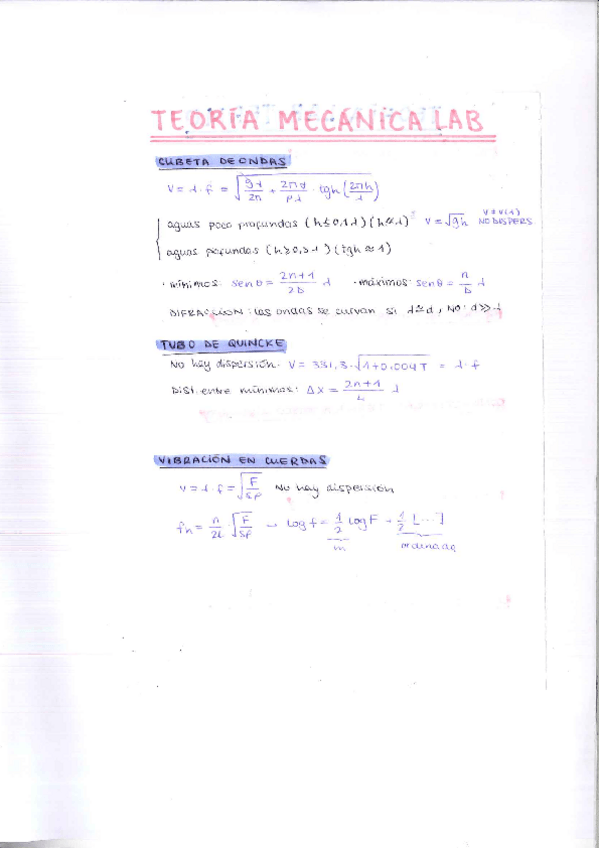 TEORÍA MECÁNICA LAB
CUBETA DE ONDAS
V = λ · f = √(gλ/2π + 2πσ/ρλ · tgh(2πh/λ))
aguas poco profundas (h≤0,1λ) (h≪λ) V = √gh V≠V(λ) NO DISPERS
aguas profundas (h≥0,5λ) (tgh≈1)
· mínimos: senθ = 2n+1/2b λ · máximos: senθ = n/b λ
DIFRACCIÓN: las ondas se curvan si λ≥d, NO: d≫λ
TUBO DE QUINCKE
No hay dispersión. V = 331,3·√1+0.004T = λ·f
Dist. entre mínimos: ΔX = 2n+1/4 λ
VIBRACIÓN EN CUERDAS
v = λ·f = √F/Sρ No hay dispersión
fn = n/2L · √F/Sρ → log f = 1/2 log F + 1/2 [...]
m ordenada